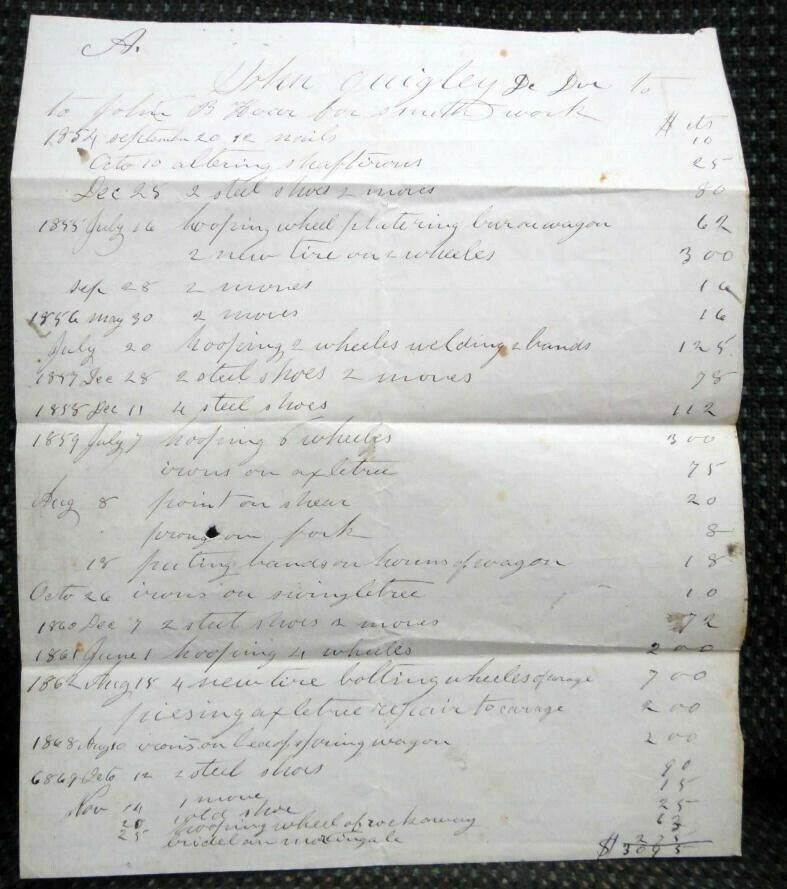 A.
John Quigley Dr Due to
to John B Hoar for smith work
$ cts
1854 september 20 12 nails 10
Octo 10 altering shaft irons 25
Dec 28 2 steel shoes 2 moves 80
1855 July 16 hooping wheel platering bur on wagon 62
2 new tire on 2 wheeles 300
sep 28 2 moves 16
1856 may 30 2 moves 16
July 20 hooping 2 wheeles welding 2 bands 125
1857 Dec 28 2 steel shoes 2 moves 78
1858 Dec 11 4 steel shoes 112
1859 July 7 hooping 6 wheeles 300
irons on axletree 75
Aug 8 point on shear 20
prong on fork 8
18 puting bands on houns of wagon 18
Octo 26 irons on swingletree 10
1860 Dec 7 2 steel shoes 2 moves 72
1861 June 1 hooping 4 wheeles 200
1862 Aug 18 4 new tire bolting wheeles of carage 700
piesing axletree repair to carage 200
1868 Aug 10 irons on head of spring wagon 200
6869 Octo 12 2 steel shoes 90
Nov 14 1 move 15
20 1 old shoe 25
hooping wheel of rockaway 62
25 bridel an martingale
$ 3095